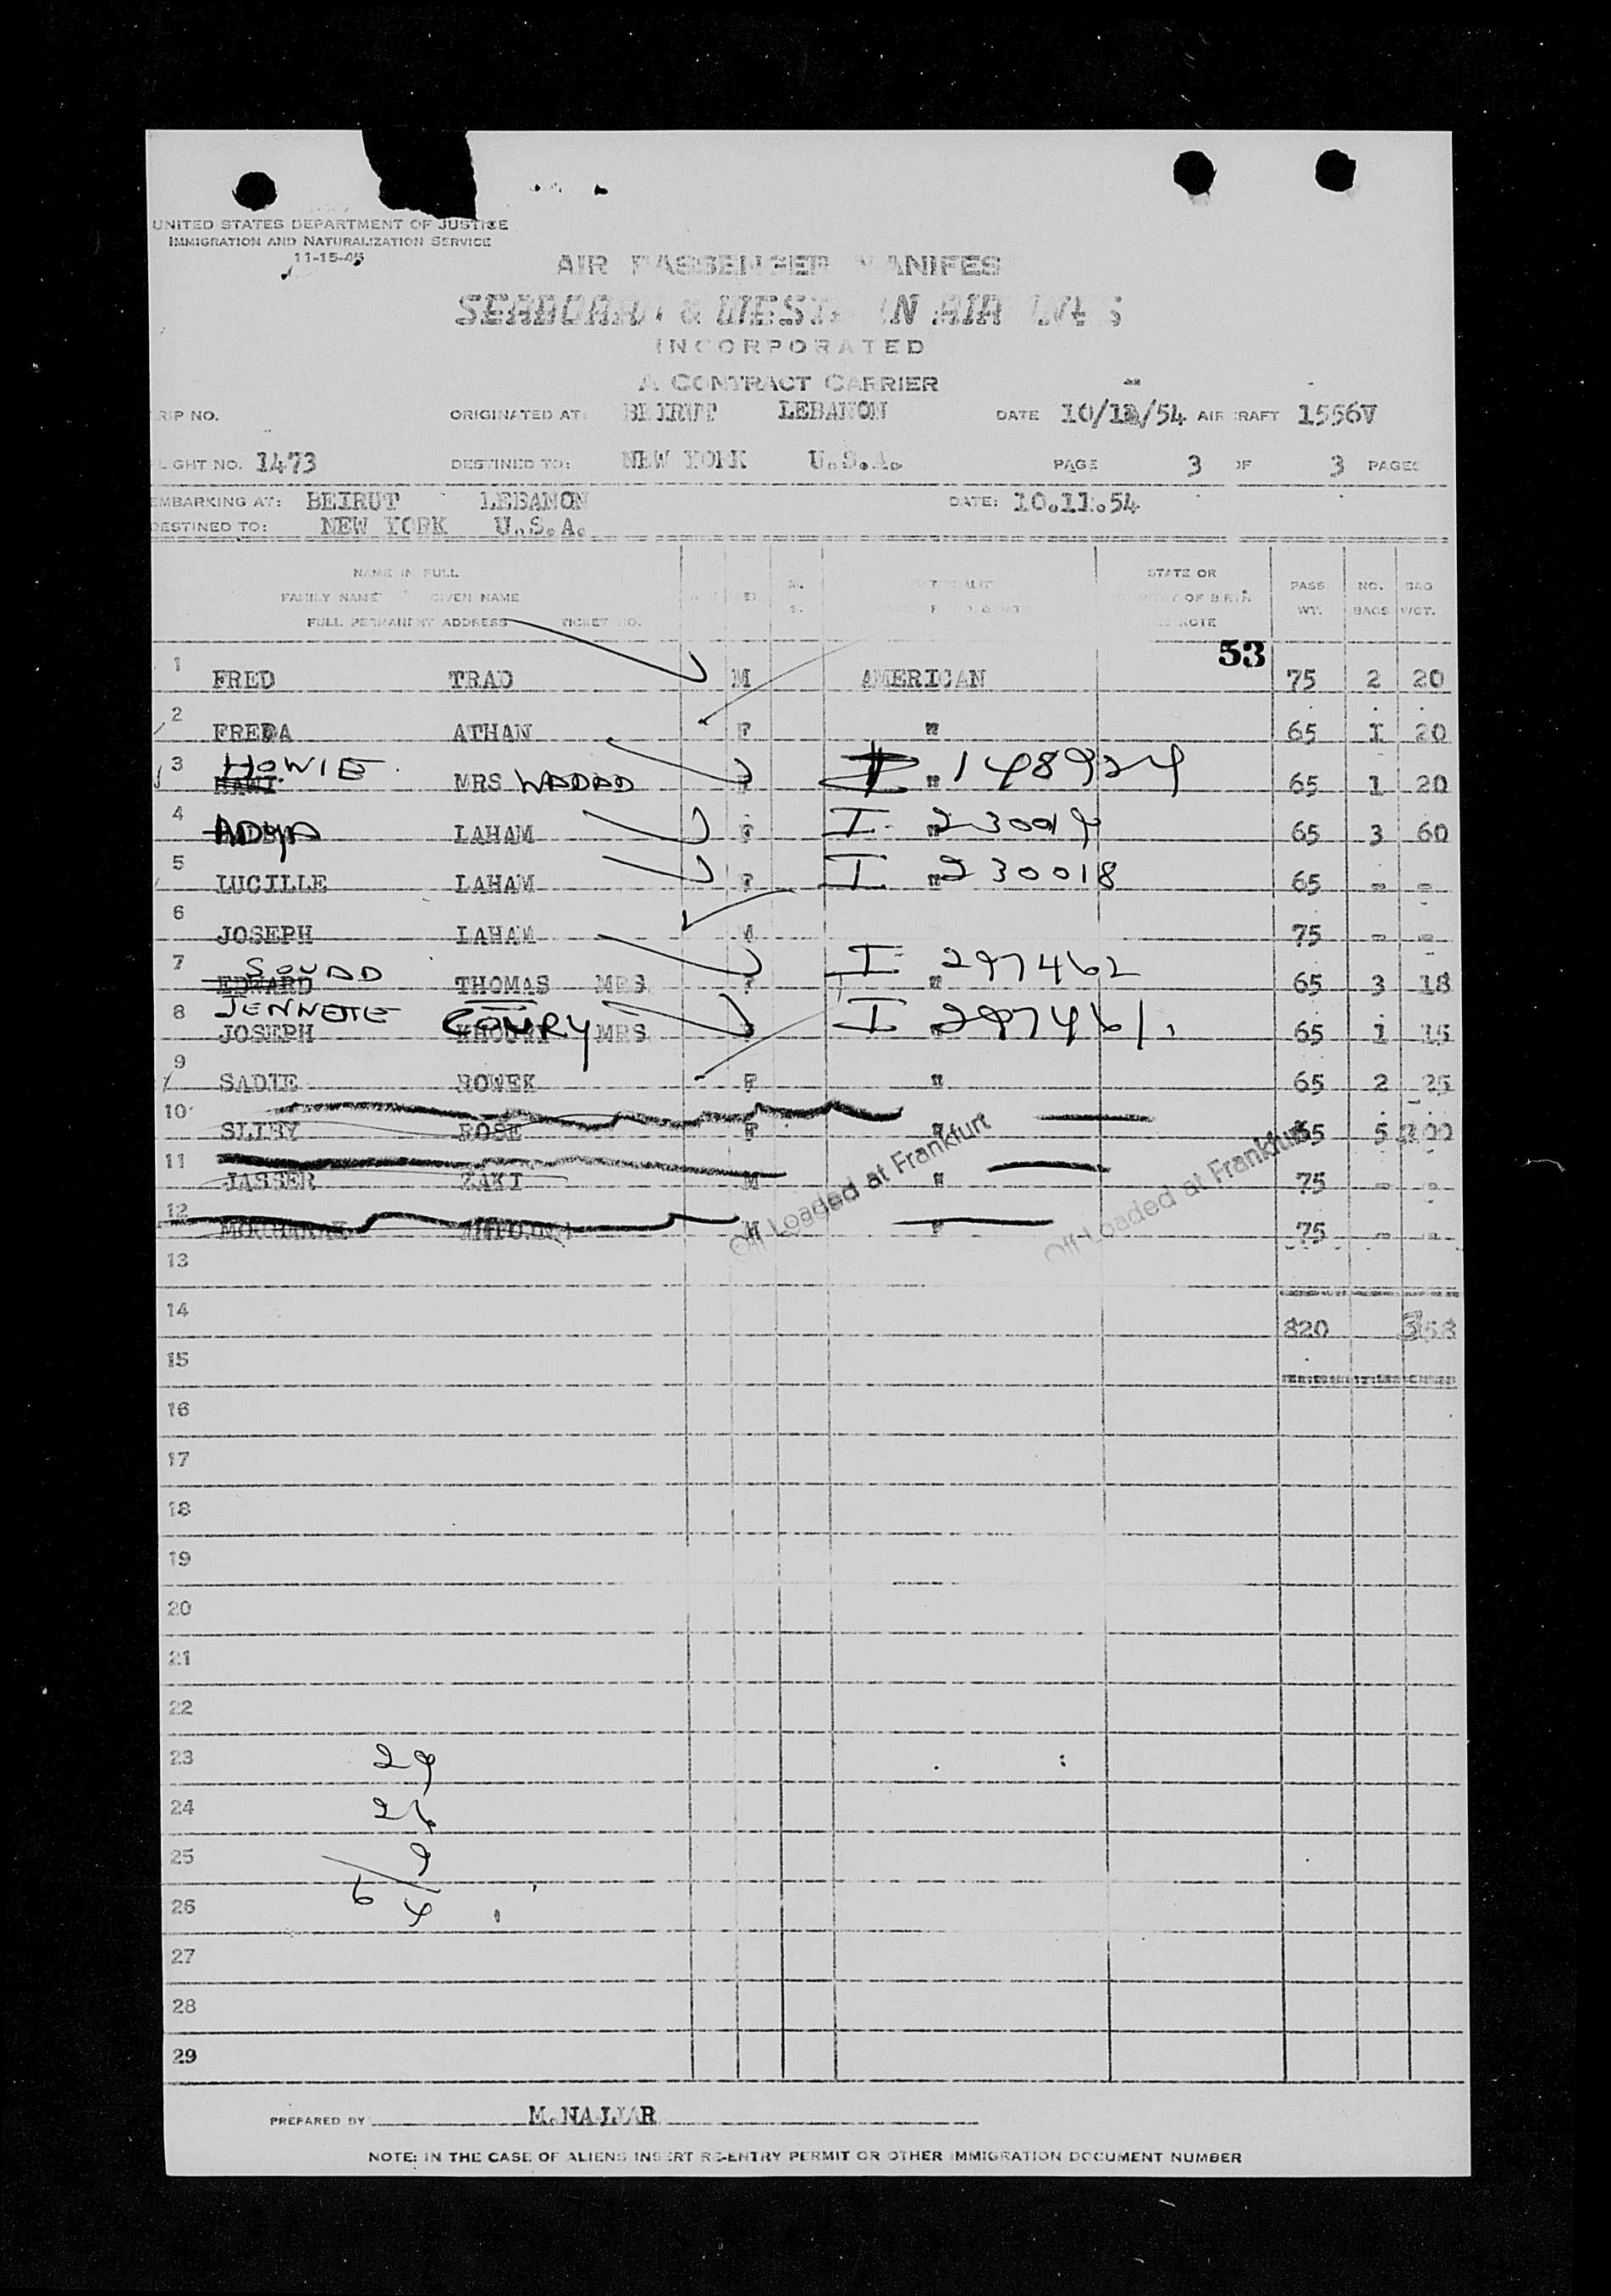 UNITED STATES DEPARTMENT OF JUSTICE
IMMIGRATION AND NATURALIZATION SERVICE
11-15-45
AIR PASSENGER MANIFES
SEABOARD & WESTERN AIRLINES
INCORPORATED
A CONTRACT CARRIER
RIP NO. ORIGINATED AT: BEIRUT LEBANON DATE 10/12/54 AIRCRAFT 1556V
LIGHT NO. 1473 DESTINED TO: NEW YORK U.S.A. PAGE 3 OF 3 PAGES
EMBARKING AT: BEIRUT LEBANON DATE: 10.11.54
DESTINED TO: NEW YORK U.S.A.
NAME IN FULL STATE OR
FAMILY NAME GIVEN NAME M. NATIONALITY COUNTRY OF BIRTH PASS. NO. BAG
FULL PERMANENT ADDRESS TICKET NO. S. WT. BAGS WGT.
53
1 FRED TRAD M AMERICAN 75 2 20
2 FREDA ATHAN F " 65 1 20
3 HOWIE. MRS WADAD F " 148924 65 1 20
4 ADYA LAHAM F I " 230019 65 3 60
5 LUCILLE LAHAM F I " 230018 65 - -
6 JOSEPH LAHAM M 75 - -
7 SOUAD
EDWARD THOMAS MRS F I " 297462 65 3 18
8 JENNETTE
JOSEPH COURY MRS I " 297461 65 1 15
9 SADIE ROWEK F " 65 2 25
10 SLIBY ROSE F " 65 5
11 JASSER ZAKI M " 75 - -
12 M " 75 - -
Off Loaded at Frankfurt Off Loaded at Frankfurt
13
14 820 358
15
16
17
18
19
20
21
22
23 29
24 26
25 9
26 64
27
28
29
PREPARED BY M. NAJJAR
NOTE: IN THE CASE OF ALIENS INSERT RE-ENTRY PERMIT OR OTHER IMMIGRATION DOCUMENT NUMBER